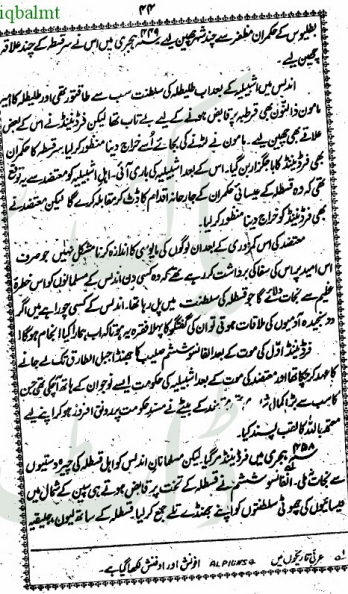 iqbalmt
۴۴
بطلیوس کے حکمران مظفر سے چند شہر چھین لیے ۴۴۹ ہجری میں اس نے سرقسطہ کے چند علاقے
چھین لیے۔
اندلس میں اشبیلیہ کے بعد اب طلیطلہ کی سلطنت سب سے طاقتور تھی اور طلیطلہ کا امیر
مامون ذوالنون بھی قرطبہ پر قابض ہونے کے لیے بے تاب تھا لیکن فرڈیننڈ نے اس کے بعض
علاقے بھی چھین لیے۔ مامون نے لڑنے کی بجائے اُسے خراج دینا منظور کر لیا۔ سرقسطہ کا حکمران
بھی فرڈیننڈ کا باجگزار بن گیا۔ اس کے بعد اشبیلیہ کی باری آئی۔ اہل اشبیلیہ کو معتضد سے یہ توقع
تھی کہ وہ قسطلہ کے عیسائی حکمران کے جارحانہ اقدام کا ڈٹ کر مقابلہ کرے گا لیکن معتضد نے
بھی فرڈیننڈ کو خراج دینا منظور کر لیا۔
معتضد کی اس کمزوری کے بعد ان لوگوں کی مایوسی کا اندازہ کرنا مشکل نہیں جو صرف
اس امید پر اس کی سفاکی برداشت کر رہے تھے کہ وہ کسی دن اندلس کے مسلمانوں کو اس خطرۂ
عظیم سے نجات دلائے گا جو قسطلہ کی سلطنت میں پل رہا تھا۔ اندلس کے کسی چوراہے میں اگر
دو سنجیدہ آدمیوں کی ملاقات ہوتی تو ان کی گفتگو کا پہلا فقرہ یہ ہوتا کہ اب ہمارا کیا انجام ہوگا!
فرڈیننڈ اوّل کی موت کے بعد الفانسو ششم صلیب کا جھنڈا جبل الطارق تک لے جانے
کا عہد کر چکا تھا اور معتضد کی موت کے بعد اشبیلیہ کی حکومت ایسے نوجوان کے ہاتھ آ چکی تھی جس
کا سب سے بڑا کمال معتضد کے بیٹے نے مسندِ حکومت پر رونق افروز ہو کر اپنے لیے
معتمد باللہ کا لقب پسند کیا۔
۴۵۸ ہجری میں فرڈیننڈ مر گیا۔ لیکن مسلمانانِ اندلس کو اہل قسطلہ کی چیرہ دستیوں
سے نجات نہ ملی۔ الفانسو ششم نے قسطلہ کے تخت پر قابض ہوتے ہی سپین کے شمال میں
عیسائیوں کی چھوٹی سلطنتوں کو اپنے جھنڈے تلے جمع کر لیا۔ قسطلہ کے ساتھ لیون، جلیقیہ
عربی تاریخوں میں ALPHONSO اوفنش اور ادفنش لکھا گیا ہے۔